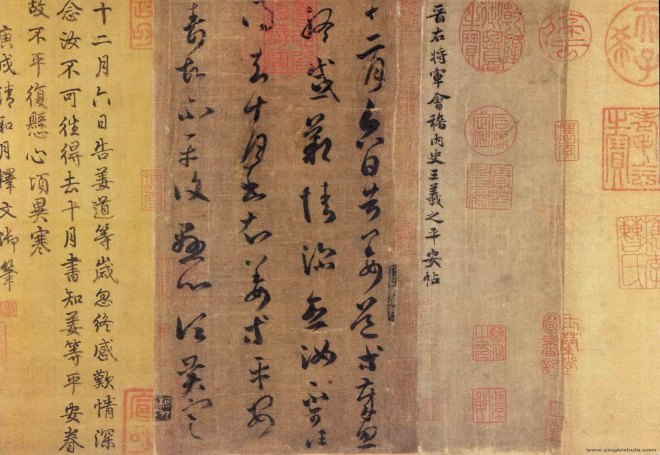 晉右將軍會稽內史王羲之平安帖
十二月六日告姜道等歲忽
終感歎情深念汝不可往
得去十月書知姜等平安
眷故不平復懸心頃異寒
十二月六日告姜道等歲忽終感歎情深
念汝不可往得去十月書知姜等平安眷
故不平復懸心頃異寒
庚戌清和月釋文御筆
www.yingbishufa.com